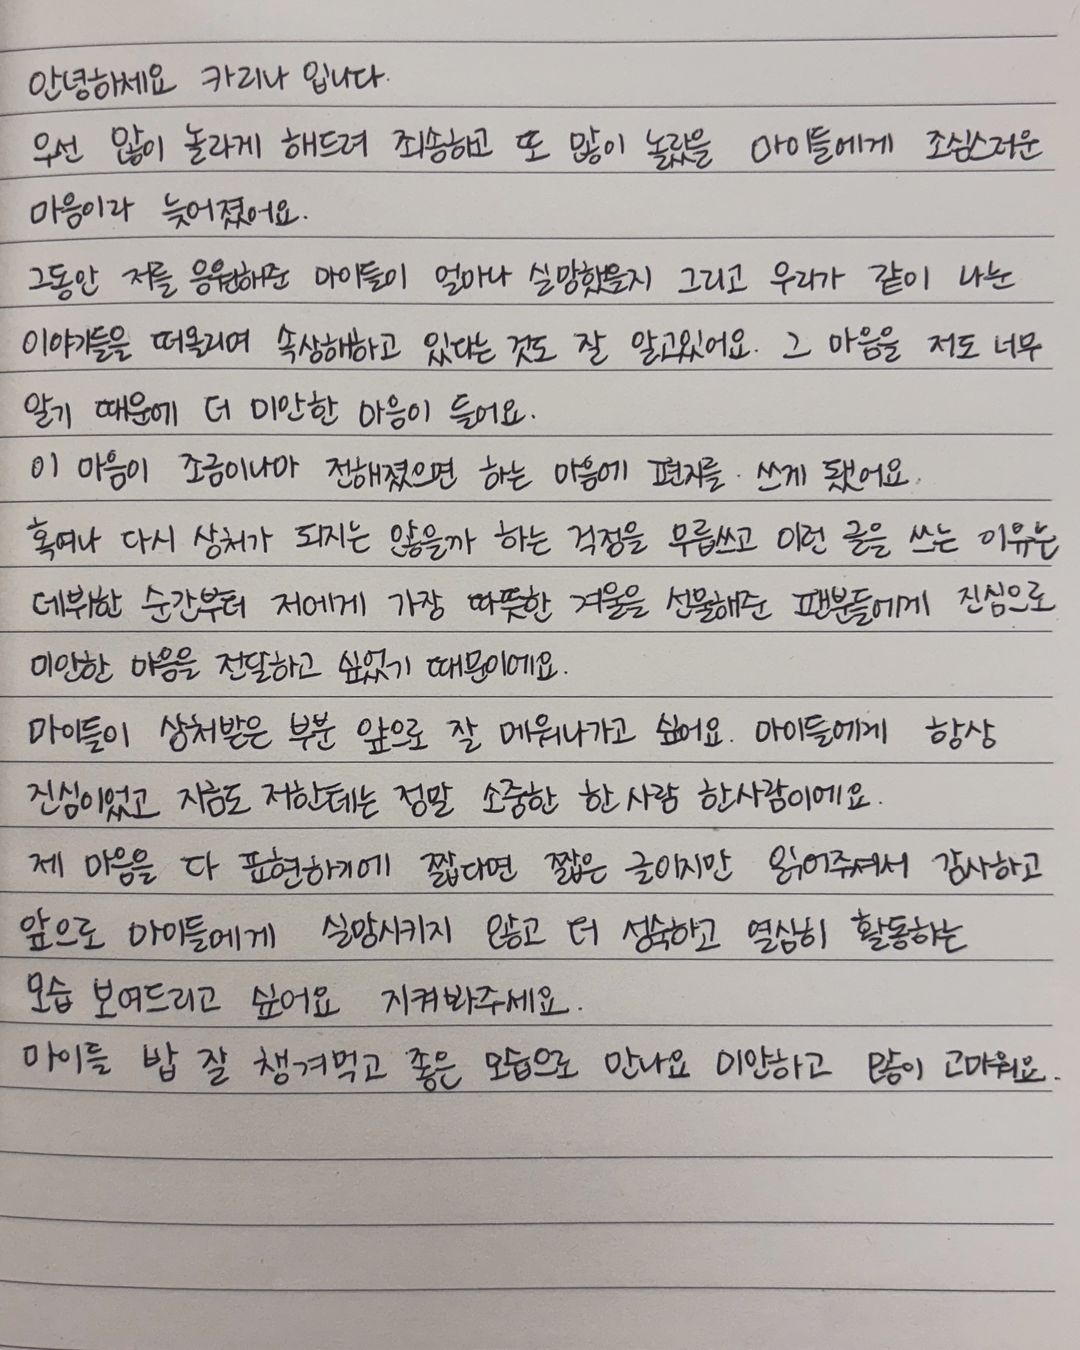 안녕하세요 카리나 입니다.
우선 많이 놀라게 해드려 죄송하고 또 많이 놀랐을 마이들에게 조심스러운
마음이라 늦어졌어요.
그동안 저를 응원해준 마이들이 얼마나 실망했을지 그리고 우리가 같이 나눈
이야기들을 떠올리며 속상해하고 있다는 것도 잘 알고있어요. 그 마음을 저도 너무
알기 때문에 더 미안한 마음이 들어요.
이 마음이 조금이나마 전해졌으면 하는 마음에 편지를 쓰게 됐어요.
혹여나 다시 상처가 되지는 않을까 하는 걱정을 무릅쓰고 이런 글을 쓰는 이유는
데뷔한 순간부터 저에게 가장 따뜻한 겨울을 선물해준 팬분들에게 진심으로
미안한 마음을 전달하고 싶었기 때문이에요.
마이들이 상처받은 부분 앞으로 잘 메워나가고 싶어요. 마이들에게 항상
진심이었고 지금도 저한테는 정말 소중한 한 사람 한사람이에요.
제 마음을 다 표현하기에 짧다면 짧은 글이지만 읽어주셔서 감사하고
앞으로 마이들에게 실망시키지 않고 더 성숙하고 열심히 활동하는
모습 보여드리고 싶어요 지켜봐주세요.
마이들 밥 잘 챙겨먹고 좋은 모습으로 만나요 미안하고 많이 고마워요.